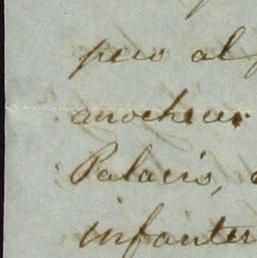 pero al
anochecer
Palacio,
infanter